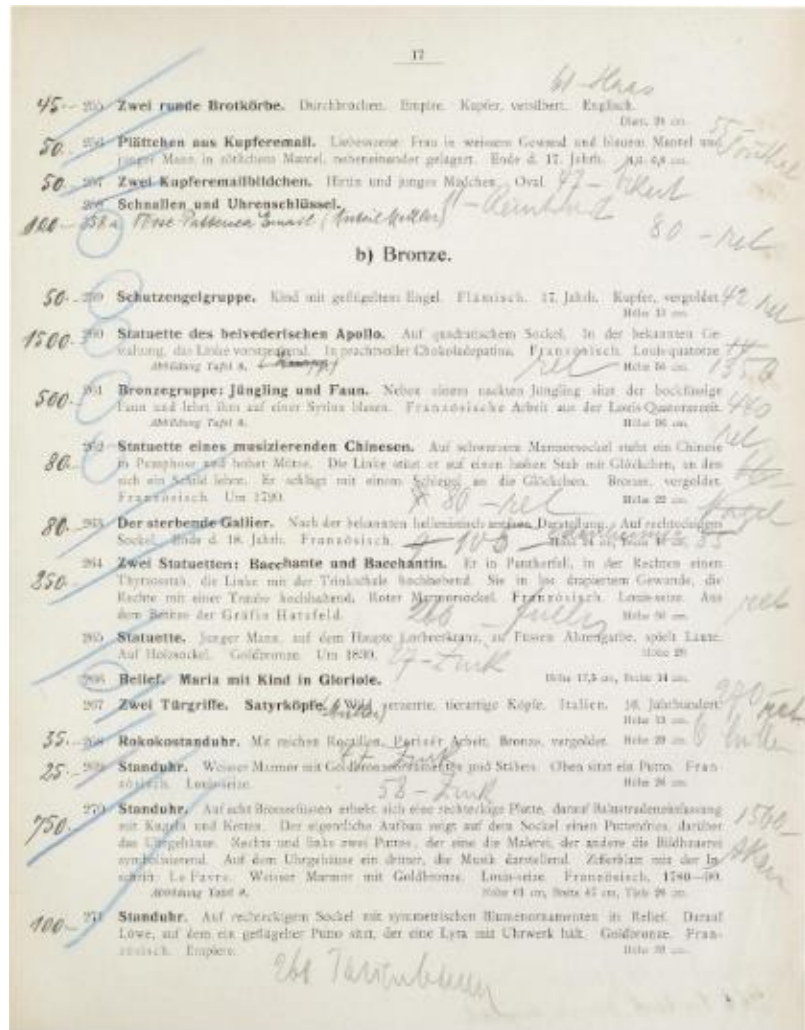 17
61 - Haas
45.- 255 Zwei runde Brotkörbe. Durchbrochen. Empire. Kupfer, versilbert. Englisch.
Diam. 24 cm.
50.- 256 Plättchen aus Kupferemail. Liebesszene: Frau in weissem Gewand und blauem Mantel und
junger Mann in rötlichem Mantel, nebeneinander gelagert. Ende d. 17. Jahrh.
50.- 257 Zwei Kupferemailbildchen. Hirtin und junges Mädchen. Oval. 47 -
258 Schnallen und Uhrenschlüssel. 11 -
100.- 258a Email
80 - ret
b) Bronze.
50.- 259 Schutzengelgruppe. Kind mit geflügeltem Engel. Flämisch. 17. Jahrh. Kupfer, vergoldet. 42 ret
Höhe 13 cm.
1500.- 260 Statuette des belvederischen Apollo. Auf quadratischem Sockel. In der bekannten Ge-
staltung, das Linke vorstreckend. In prachtvoller Chokoladepatina. Französisch. Louis-quatorze.
Abbildung Tafel 8. ret Höhe 56 cm. 1350
500.- 261 Bronzegruppe: Jüngling und Faun. Neben einem nackten Jüngling sitzt der bockfüssige
Faun und lehrt ihm auf einer Syrinx blasen. Französische Arbeit aus der Louis-Quatorzezeit. 440
Abbildung Tafel 8. ret
80.- 262 Statuette eines musizierenden Chinesen. Auf schwarzem Marmorsockel steht ein Chinese
in Pumphose und hoher Mütze. Die Linke stützt er auf einen hohen Stab mit Glöckchen, an den
sich ein Schild lehnt. Er schlägt mit einem Schlegel an die Glöckchen. Bronze, vergoldet.
Französisch. Um 1790. 80 - ret Höhe 22 cm.
80.- 263 Der sterbende Gallier. Nach der bekannten hellenistisch antiken Darstellung. Auf rechteckigem
Sockel. Ende d. 18. Jahrh. Französisch.
250.- 264 Zwei Statuetten: Bacchante und Bacchantin. Er in Pantherfell, in der Rechten einen
Thyrsosstab, die Linke mit der Trinkschale hochhebend. Sie in los drapiertem Gewande, die
Rechte mit einer Traube hochhebend. Roter Marmorsockel. Französisch. Louis-seize. Aus
dem Besitze der Gräfin Hatzfeld. 260 - ret
265 Statuette. Junger Mann, auf dem Haupte Lorbeerkranz, zu Füssen Ährengarbe, spielt Laute.
Auf Holzsockel. Goldbronze. Um 1830. 27 - Zink
266 Relief. Maria mit Kind in Gloriole. Höhe 17,5 cm, Breite 14 cm.
267 Zwei Türgriffe. Satyrköpfe. Wild verzerrte, tierartige Köpfe. Italien. 16. Jahrhundert.
Höhe 13 cm.
35.- 268 Rokokostanduhr. Mit reichen Rocaillen. Pariser Arbeit. Bronze, vergoldet. Höhe 29 cm.
25.- 269 Standuhr. Weisser Marmor mit Goldbronzeornamenten und Stäben. Oben sitzt ein Putto. Fran-
zösisch. Louis-seize. 58 - Zink Höhe 26 cm.
750.- 270 Standuhr. Auf acht Bronzefüssen erhebt sich eine rechteckige Platte, darauf Balustradeneinfassung
mit Kugeln und Ketten. Der eigentliche Aufbau zeigt auf dem Sockel einen Puttenfries, darüber
das Uhrgehäuse. Rechts und links zwei Puttos, der eine die Malerei, der andere die Bildhauerei
symbolisierend. Auf dem Uhrgehäuse ein dritter, die Musik darstellend. Zifferblatt mit der In-
schrift: Le Favre. Weisser Marmor mit Goldbronze. Louis-seize. Französisch. 1780-90.
Abbildung Tafel 9. Höhe 61 cm, Breite 47 cm, Tiefe 26 cm.
1500 -
100.- 271 Standuhr. Auf rechteckigem Sockel mit symmetrischen Blumenornamenten in Relief. Darauf
Löwe, auf dem ein geflügelter Putto sitzt, der eine Lyra mit Uhrwerk hält. Goldbronze. Fran-
zösisch. Empire.
260 Tannenbaum